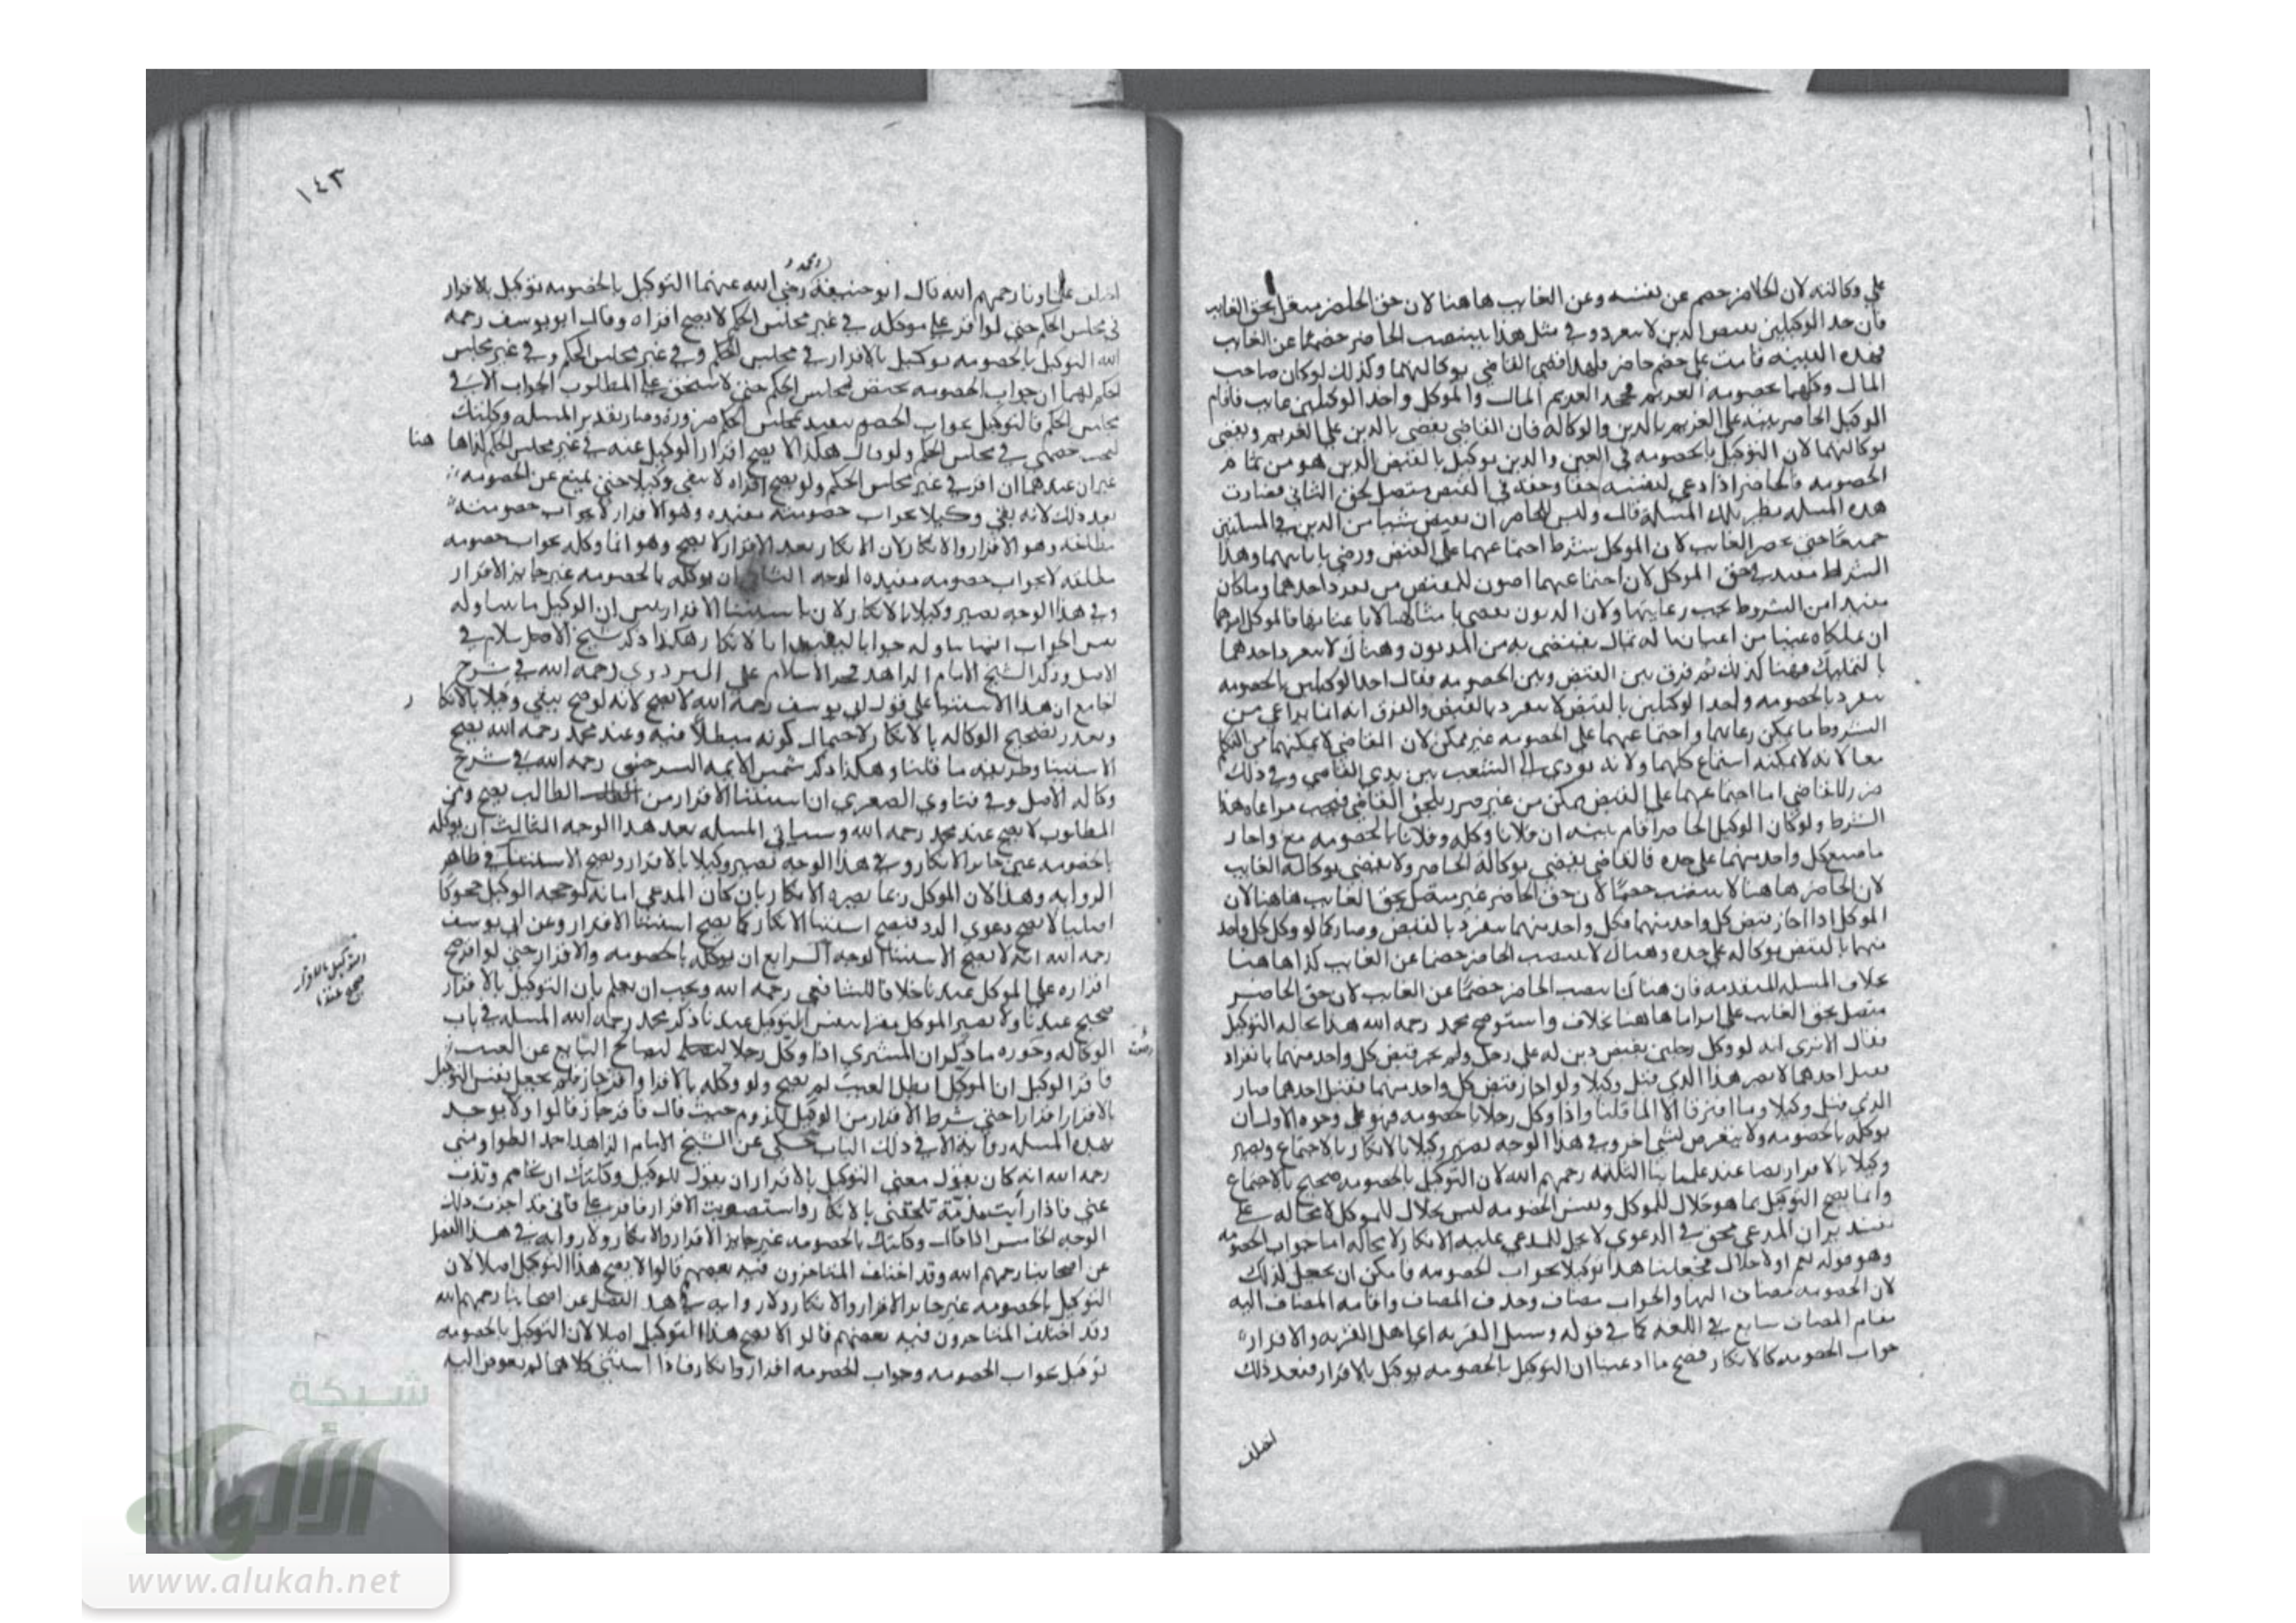 علي وكالته لان الحاضر خصم عن نفسه وعن الغايب هاهنا لان حق الحاضر متصل بحق الغايب
فان احد الوكيلين بقبض الدين لا ينفرد وفي مثل هذا ينتصب الحاضر خصما عن الغايب
فهذه البينه قامت علي خصم حاضر فلهذا قضي القاضي بوكالتهما وكذلك لو كان صاحب
المال وكلهما بخصومه الغريم فجحد الغريم المال والموكل واحد الوكيلين غايب فاقام
الوكيل الحاضر بينه علي الغريم بالدين والوكاله فان القاضي يقضي بالدين علي الغريم ويقضي
بوكالتهما لان التوكيل بالخصومه في العين والدين توكيل بالقبض الدين هو من تمام
الخصومه فالحاضر اذا ادعي لنفسه حقا وحقه في القبض متصل بحق الثاني فصارت
هذه المسله نظير تلك المسلة قال وليس للحاضر ان يقبض شيا من الدين في المسلتين
جميعا حتي يحضر الغايب لان الموكل شرط اجتماعهما علي القبض ورضي بامانتهما وهذا
الشرط مفيد في حق الموكل لان اجتماعهما اصون للقبض من تفرد احدهما وما كان
مفيدا من الشروط يجب رعايتها ولان الديون تقضي بامثالها لا باعيانها فالموكل امرهما
ان يملكاه عينا من اعيان ماله بمال يقتضي به من المديون وهناك لا ينفرد احدهما
بالتمليك فهنا كذلك ثم فرق بين القبض وبين الخصومه فقال احد الوكيلين بالخصومه
ينفرد بالخصومه واحد الوكيلين بالقبض لا ينفرد بالقبض والفرق انه انما يراعي من
الشروط ما يمكن رعايتها واجتماعهما علي الخصومه غير ممكن لان القاضي لا يمكنهما من التكلم
معا لانه لا يمكنه استماع كلهما ولانه يودي الي الشغب بين يدي القاضي وفي ذلك
ضرر للقاضي اما اجتماعهما علي القبض ممكن من غير ضرر يلحق القاضي فيجب مراعاه هذا
الشرط ولو كان الوكيل الحاضر اقام بينه ان فلانا وكله وفلانا بالخصومه مع واجاز
ما صنع كل واحد منهما علي حده فالقاضي يقضي بوكالة الحاضر ولا يقضي بوكالة الغايب
لان الحاضر هاهنا لا ينتصب خصما لان حق الحاضر غير متصل بحق الغايب هاهنا لان
الموكل اذا اجاز قبض كل واحد منهما فكل واحد منهما ينفرد بالقبض وصار كما لو وكل كل واحد
منهما بالقبض بوكاله علي حده وهناك لا ينتصب الحاضر خصما عن الغايب كذا هاهنا
بخلاف المسله المتقدمه فان هناك انما ينتصب الحاضر خصما عن الغايب لان حق الحاضر
متصل بحق الغايب علي ما هاهنا بخلاف واستوضح محمد رحمه الله هذا بحاله التوكيل
فقال الا تري انه لو وكل رجلين بقبض دين له علي رجل ولم يجز قبض كل واحد منهما بانفراد
فقبل احدهما لا يصير هذا الذي قبل وكيلا ولو اجاز قبض كل واحد منهما فقبل احدهما صار
الذي قبل وكيلا وما افترقا الا لما قلنا واذا وكل رجلا بالخصومه فهو علي وجوه الاول ان
يوكله بالخصومه ولا يتعرض لشي اخر وفي هذا الوجه يصير وكيلا بالانكار بالاجماع ويصير
وكيلا بالاقرار ايضا عند علماينا الثلثه رحمهم الله لان التوكيل بالخصومه صحيح بالاجماع
وانما يصح التوكيل بما هو حلال للموكل ونفس الخصومه ليس بحلال للموكل لا محاله علي
تقدير ان المدعي محق في الدعوي لا يحل للمدعي عليه الانكار لا محاله اما جواب الخصومه
وهو قوله نعم او لا حلال فجعلنا هذا توكيلا بجواب الخصومه فامكن ان يجعل لذلك
لان الخصومه مضاف اليها والجواب مضاف وحذف المضاف واقامه المضاف اليه
مقام المضاف سايغ في اللغه كما في قوله وسل القريه اي اهل القريه والاقرار
جواب الخصومه كالانكار فصح ما ادعينا ان التوكيل بالخصومه توكيل بالاقرار فبعد ذلك
اختلف
١٤٣
اختلف علماونا رحمهم الله قال ابو حنيفة ومحمد رضي الله عنهما التوكيل بالخصومه توكيل بالاقرار
في مجلس الحكم حتي لو اقر علي موكله في غير مجلس الحكم لا يصح اقراره وقال ابو يوسف رحمه
الله التوكيل بالخصومه توكيل بالاقرار في مجلس الحكم وفي غير مجلس الحكم وفي غير مجلس
الحكم لهما ان جواب الخصومه يختص بمجلس الحكم حتي لا يستحق علي المطلوب الجواب الا في
مجلس الحكم فالتوكيل بجواب الخصم يتقيد بمجلس الحكم ضرورة وصار تقدير المسله وكلتك
لتجيب خصمي في مجلس الحكم ولو قال هكذا لا يصح اقرار الوكيل عنه في غير مجلس الحكم كذا هاهنا
غير ان عندهما ان اقر في غير مجلس الحكم ولو يصح اقراره لا يبقي وكيلا حتي يمنع عن الخصومه
بعد ذلك لانه بقي وكيلا بجواب خصومة مقيده وهو الاقرار لا بجواب خصومته
مطلقه وهو الاقرار والانكار لان الانكار بعد الاقرار لا يصح وهو انما وكله بجواب خصومه
مطلقه لا بجواب خصومه مقيده الوجه الثاني ان يوكله بالخصومه غير جايز الاقرار
وفي هذا الوجه يصير وكيلا بالانكار لان باستثنا الاقرار يتبين ان الوكيل ما تناوله
نفس الجواب انما تناوله جوابا مقيدا بالانكار هكذا ذكر شيخ الاسلام في
الاصل وذكر الشيخ الامام الزاهد فخر الاسلام علي البزدوي رحمه الله في شرح
الجامع ان هذا الاستثنا علي قول ابي يوسف رحمه الله لا يصح لانه لو صح يبقي وكيلا بالانكار
وتعذر تصحيح الوكاله بالانكار لاحتمال كونه مبطلا فيه وعند محمد رحمه الله يصح
الاستثنا وطريقه ما قلنا وهكذا ذكر شمس الايمه السرخسي رحمه الله في شرح
وكاله الاصل وفي فتاوي الصغري ان استثنا الاقرار من الطالب يصح ومن
المطلوب لا يصح عند محمد رحمه الله وسياتي المسله بعد هذا الوجه الثالث ان يوكله
بالخصومه غير جايز الانكار وفي هذا الوجه يصير وكيلا بالاقرار ويصح الاستثنا في ظاهر
الروايه وهذا لان الموكل ربما يضره الانكار بان كان المدعي امانه لو جحد الوكيل جحوكا
اصليا لا يصح دعوي الرد فيصح استثنا الانكار كما يصح استثنا الاقرار وعن ابي يوسف
رحمه الله انه لا يصح الاستثنا الوجه الرابع ان يوكله بالخصومه والاقرار حتي لو اقر صح
اقراره علي الموكل عندنا خلافا للشافعي رحمه الله ويجب ان يعلم بان التوكيل بالاقرار
صحيح عندنا ولا يصير الموكل مقرا بنفس التوكيل عندنا ذكر محمد رحمه الله المسله في باب
الوكاله وصوره ما ذكر ان المشتري اذا وكل رجلا ليصالح البايع عن العيب
فاقر الوكيل ان الموكل ابطل العيب لم يصح ولو وكله بالاقرار واقر جاز فلم يجعل نفس التوكيل
بالاقرار اقرارا حتي شرط الاقرار من الوكيل للزوم حيث قال فاقر جاز قالوا ولا يوجد
هذه المسله روايه الا في ذلك الباب يحكي عن الشيخ الامام الزاهد احمد الطواويسي
رحمه الله انه كان يقول معني التوكيل بالاقرار ان يقول للوكيل وكلتك ان تخاصم وتذب
عني فاذا رايت مذمة تلحقني بالانكار واستصوبت الاقرار فاقر علي فاني قد اجزت ذلك
الوجه الخامس اذا قال وكلتك بالخصومه غير جايز الاقرار والانكار ولا روايه في هذا الفصل
عن اصحابنا رحمهم الله وقد اختلف المتاخرون فيه بعضهم قالوا لا يصح هذا التوكيل اصلا لان
التوكيل بالخصومه غير جايز الاقرار والانكار ولا روايه في هذا الفصل عن اصحابنا رحمهم الله
وقد اختلف المتاخرون فيه بعضهم قالوا لا يصح هذا التوكيل اصلا لان التوكيل بالخصومه
توكيل بجواب الخصومه وجواب الخصومه اقرار وانكار فاذا استثني كلاهما لم يفوض اليه
التوكيل بالاقرار
صحيح عندنا
شبكة
الألوكة
www.alukah.net